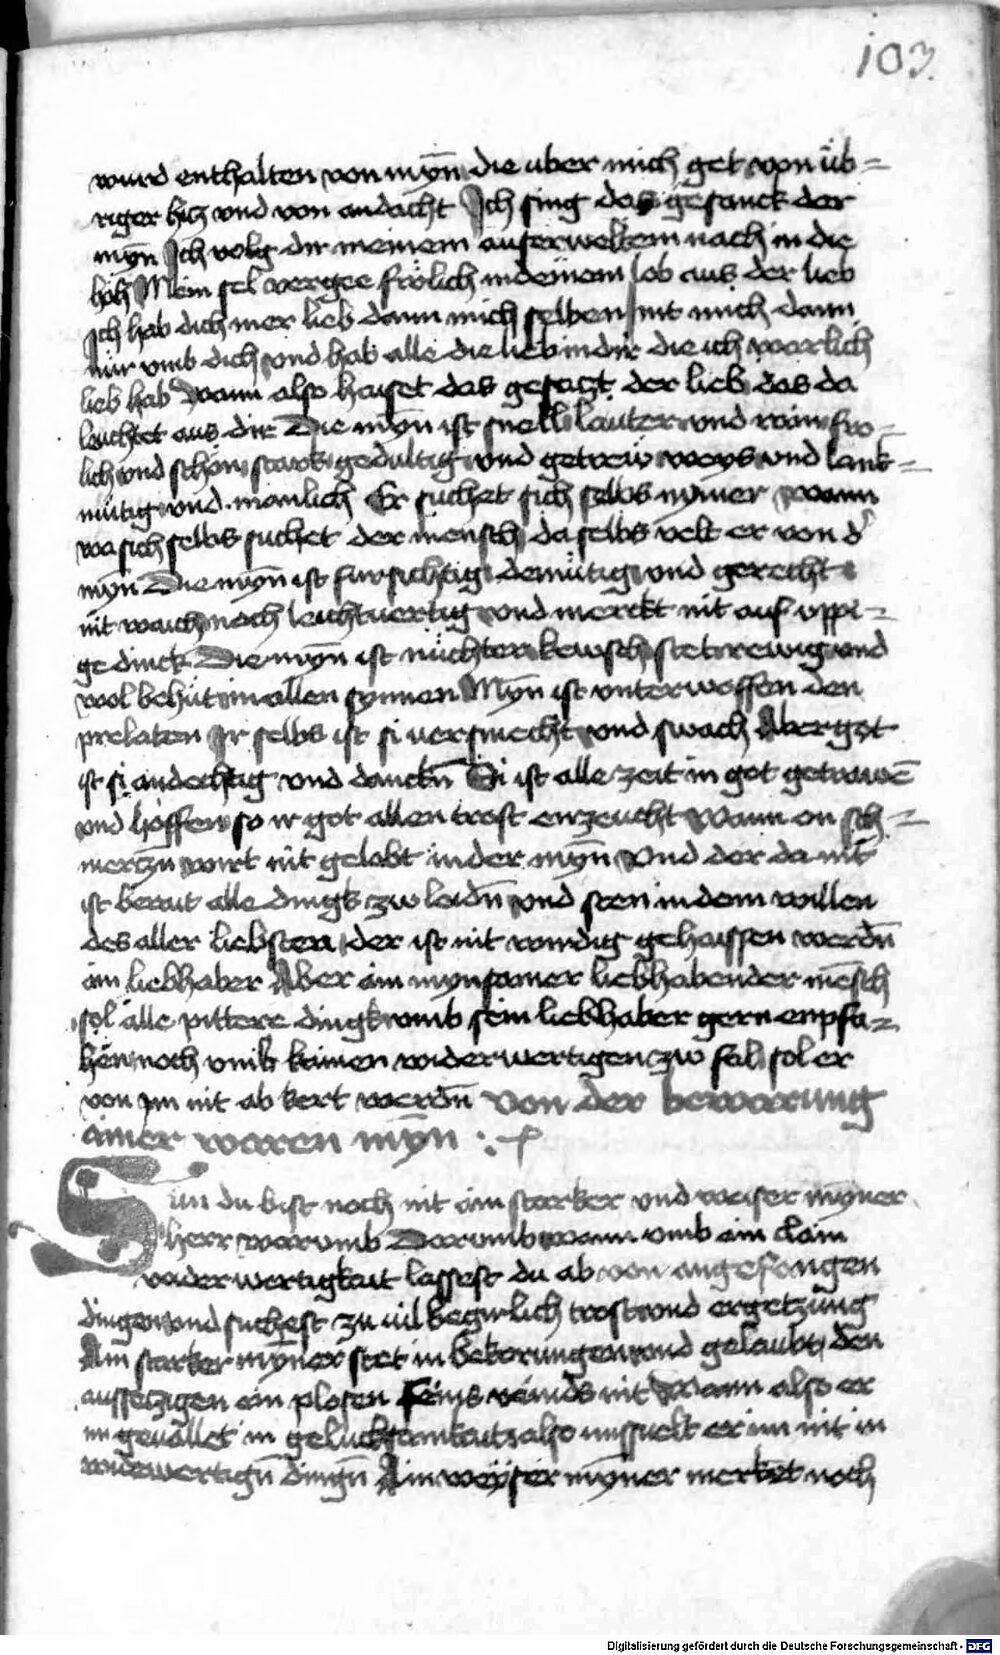 103
wurd enthalten von myn̄ die uber mich get von üb=
riger hicz vnd von andacht Ich sing das gesanck der
myn̄ Ich volg dir meinem auserweltem nach in die
höh Mein sel vergee frölich in deinem lob aus der lieb
Ich hab dich mer lieb dann mich selben mich dann
nür vmb dich vnd hab alle die lieb in dir die ich warlich
lieb hab Wann also haiset das gesaczt der lieb das da
leuchtet aus dir Die myn̄ ist snell lauter vnd rain fro=
lich vnd schön starck gedultig vnd getrew weys vnd lank=
mütig vnd manlich Er suchet sich selbs nymer Wann
wa sich selbs suchet der mensch da selbs velt er von d'
myn̄ Die myn̄ ist fursichtig demütig vnd gerecht
nit waich noch leichtuertig vnd merckt nit auf vppi=
ge dinck Die myn̄ ist nüchter kewsch stet rewig vnd
wol behüt in allen synnen Myn̄ ist vnterworffen den
prelaten Ir selbs ist si versmecht vnd swach Aber got
ist si andechtig vnd danckn̄ Si ist alle zeit in got getrawē
vnd hoffen so ir got allen trost enzeucht Wann on sch=
merczn wirt nit gelebt in der myn̄ Vnd der da nit
ist berait alle dingk zw leidn̄ vnd sten in dem willen
des aller liebsten der ist nit wirdig gehaissen werdn̄
ain liebhaber Aber ain mynsamer liebhabender mēsch
sol alle pittere dingk vmb sein liebhaber gern enpfa=
hen noch vmb kainen widerwertigen zw fal sol er
von im nit ab kert werdn̄ Von der bewarung
ainer waren myn̄
Sun du bist noch nit ain starker vnd weiser myner
herr warumb Darumb wann vmb ain clain
widerwertigkait lassest du ab von angefangen
dingen vnd suchest zu uil begirlich trost vnd ergetzung
Ain starker myner stet in bekorungen vnd gelaubt den
aussetzigen ein plosen seins veinds nit Wann also er
im geuallet in gelucksamkait also missuelt er im nit in
widerwertign̄ dingn̄ Ain weyser myner merket noch
Digitalisierung gefördert durch die Deutsche Forschungsgemeinschaft - DFG